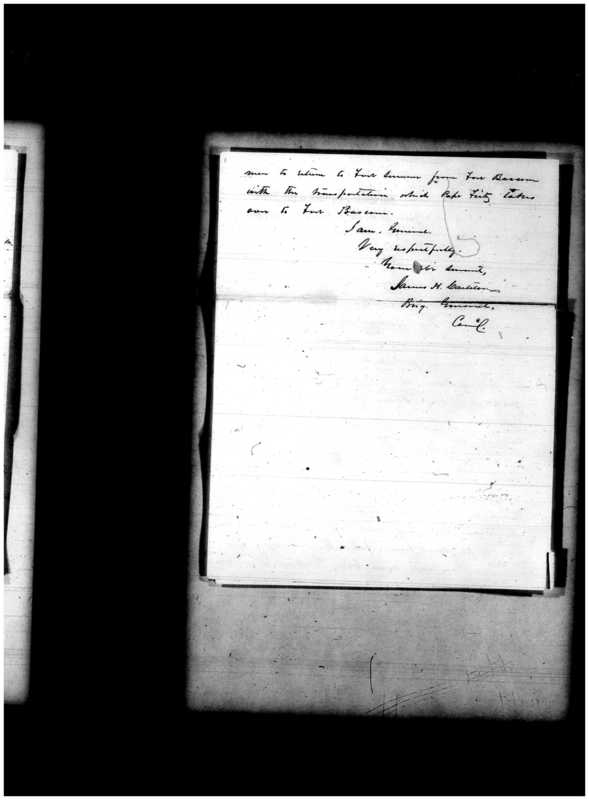 men to return to Fort Sumner from Fort Bascom
with the transportation which Capt Fritz takes
over to Fort Bascom.
I am, General
Very respectfully,
Your obt servant,
James H. Carleton
Brig General,
Com'd'g.